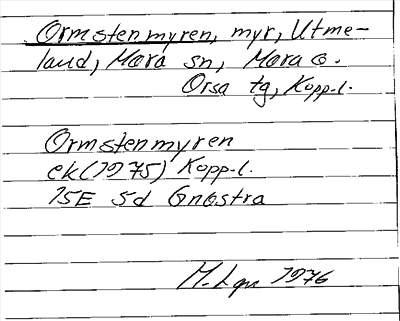 Ormstenmyren, myr, Utme-
land, Mora sn, Mora o.
Orsa tg, Kopp.l.
Ormstenmyren
ek (1975) Kopp.l.
15E 5d Gnostra
M. 1976